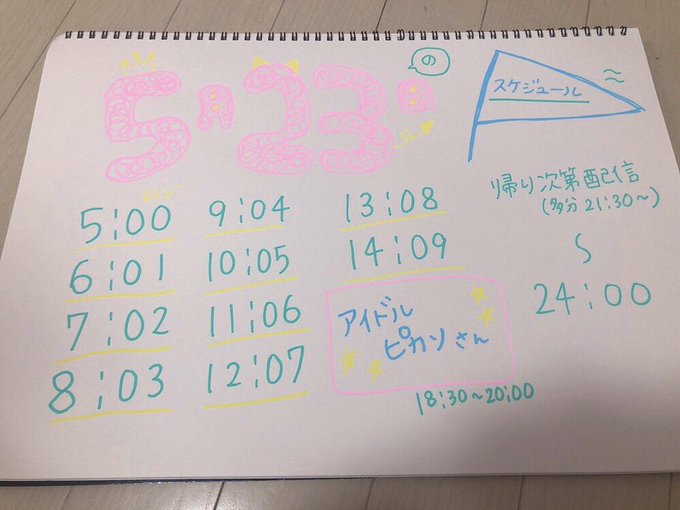 5月23日の
スケジュール
5:00
6:01
7:02
8:03
9:04
10:05
11:06
12:07
13:08
14:09
アイドル
ピカソさん
18:30~20:00
帰り次第配信
(多分21:30~)
~
24:00